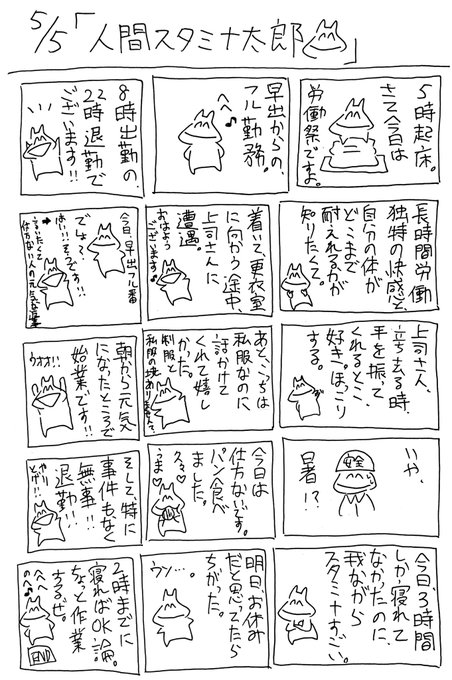 5/5「人間スタミナ太郎」
5時起床。
さて今日は
労働祭ですよ。
早出からの、
フル勤務。
へへ♪
8時出勤の、
22時退勤で
ございます!!
長時間労働
独特の快感と、
自分の体が
どこまで
耐えれるかが
知りたくて。
着いて更衣室
に向かう途中、
上司さんに
遭遇。
おはよう
ございます♪
今日、早出フル番
でしょ?
はい!!そうです!!
上司さん、
立ち去る時、
手を振って
くれるとこ、
好き。ほっこり
する。
あと、こっちは
私服なのに
話かけて
くれて嬉し
かった。
朝から元気
になったところで
始業です!!
ウオオ!!
いや、
安全
暑!?
今日は
仕方ないです。
パン食べ
ました。
うま♡
そして、特に
事件もなく
無事!!
退勤!!
今日、3時間
しか寝れて
なかったのに、
我ながら
スタミナすごい。
明日、お休み
だと思ってたら
ちがった。
ウン…。
2時までに
寝ればOK論。
ちょっと作業
するぜ。
END